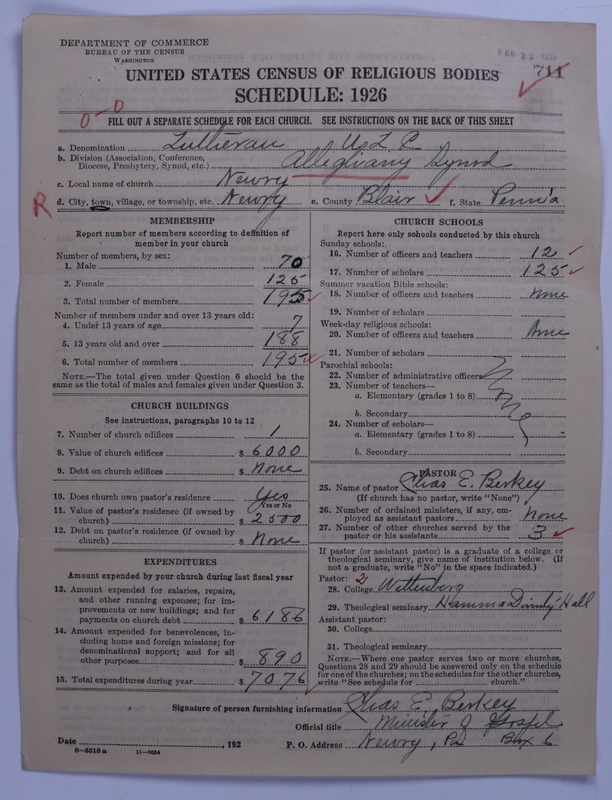 DEPARTMENT OF COMMERCE
BUREAU OF THE CENSUS
WASHINGTON
FEB 25 1927
711
UNITED STATES CENSUS OF RELIGIOUS BODIES
SCHEDULE: 1926
0-0
FILL OUT A SEPARATE SCHEDULE FOR EACH CHURCH. SEE INSTRUCTIONS ON THE BACK OF THIS SHEET
a. Denomination Lutheran U L C
b. Division (Association, Conference, Diocese, Presbytery, Synod, etc.) Alleghany Synod
c. Local name of church Newry
R d. City, town, village, or township, etc. Newry e. County Blair f. State Penn'a
MEMBERSHIP
Report number of members according to definition of
member in your church
Number of members, by sex:
1. Male 70
2. Female 125
3. Total number of members 195
Number of members under and over 13 years old:
4. Under 13 years of age 7
5. 13 years old and over 188
6. Total number of members 195
NOTE.—The total given under Question 6 should be the
same as the total of males and females given under Question 3.
CHURCH BUILDINGS
See instructions, paragraphs 10 to 12
7. Number of church edifices 1
8. Value of church edifices $ 6000
9. Debt on church edifices $ None
10. Does church own pastor's residence Yes
Yes or No
11. Value of pastor's residence (if owned by
church) $ 2500
12. Debt on pastor's residence (if owned by
church) $ None
EXPENDITURES
Amount expended by your church during last fiscal year
13. Amount expended for salaries, repairs,
and other running expenses; for im-
provements or new buildings; and for
payments on church debt $ 6186
14. Amount expended for benevolences, in-
cluding home and foreign missions; for
denominational support; and for all
other purposes $ 890
15. Total expenditures during year $ 7076
CHURCH SCHOOLS
Report here only schools conducted by this church
Sunday schools:
16. Number of officers and teachers 12
17. Number of scholars 125
Summer vacation Bible schools:
18. Number of officers and teachers None
19. Number of scholars
Week-day religious schools:
20. Number of officers and teachers None
21. Number of scholars
Parochial schools:
22. Number of administrative officers
23. Number of teachers—
a. Elementary (grades 1 to 8)
b. Secondary
24. Number of scholars—
a. Elementary (grades 1 to 8)
b. Secondary
None
PASTOR
25. Name of pastor Elias E. Berkey
(If church has no pastor, write "None")
26. Number of ordained ministers, if any, em-
ployed as assistant pastors None
27. Number of other churches served by the
pastor or his assistants 3
If pastor (or assistant pastor) is a graduate of a college or
theological seminary, give name of institution below. (If
not a graduate, write "No" in the space indicated.)
Pastor: 2
28. College Wittenberg
29. Theological seminary Hamma Divinity Hall
Assistant pastor:
30. College
31. Theological seminary
NOTE.—Where one pastor serves two or more churches,
Questions 28 and 29 should be answered only on the schedule
for one of the churches; on the schedules for the other churches,
write "See schedule for church."
Signature of person furnishing information Elias E. Berkey
Official title Minister of Gospel
Date , 192 P. O. Address Newry, Pa Box 6
8-5518 a 11-9064